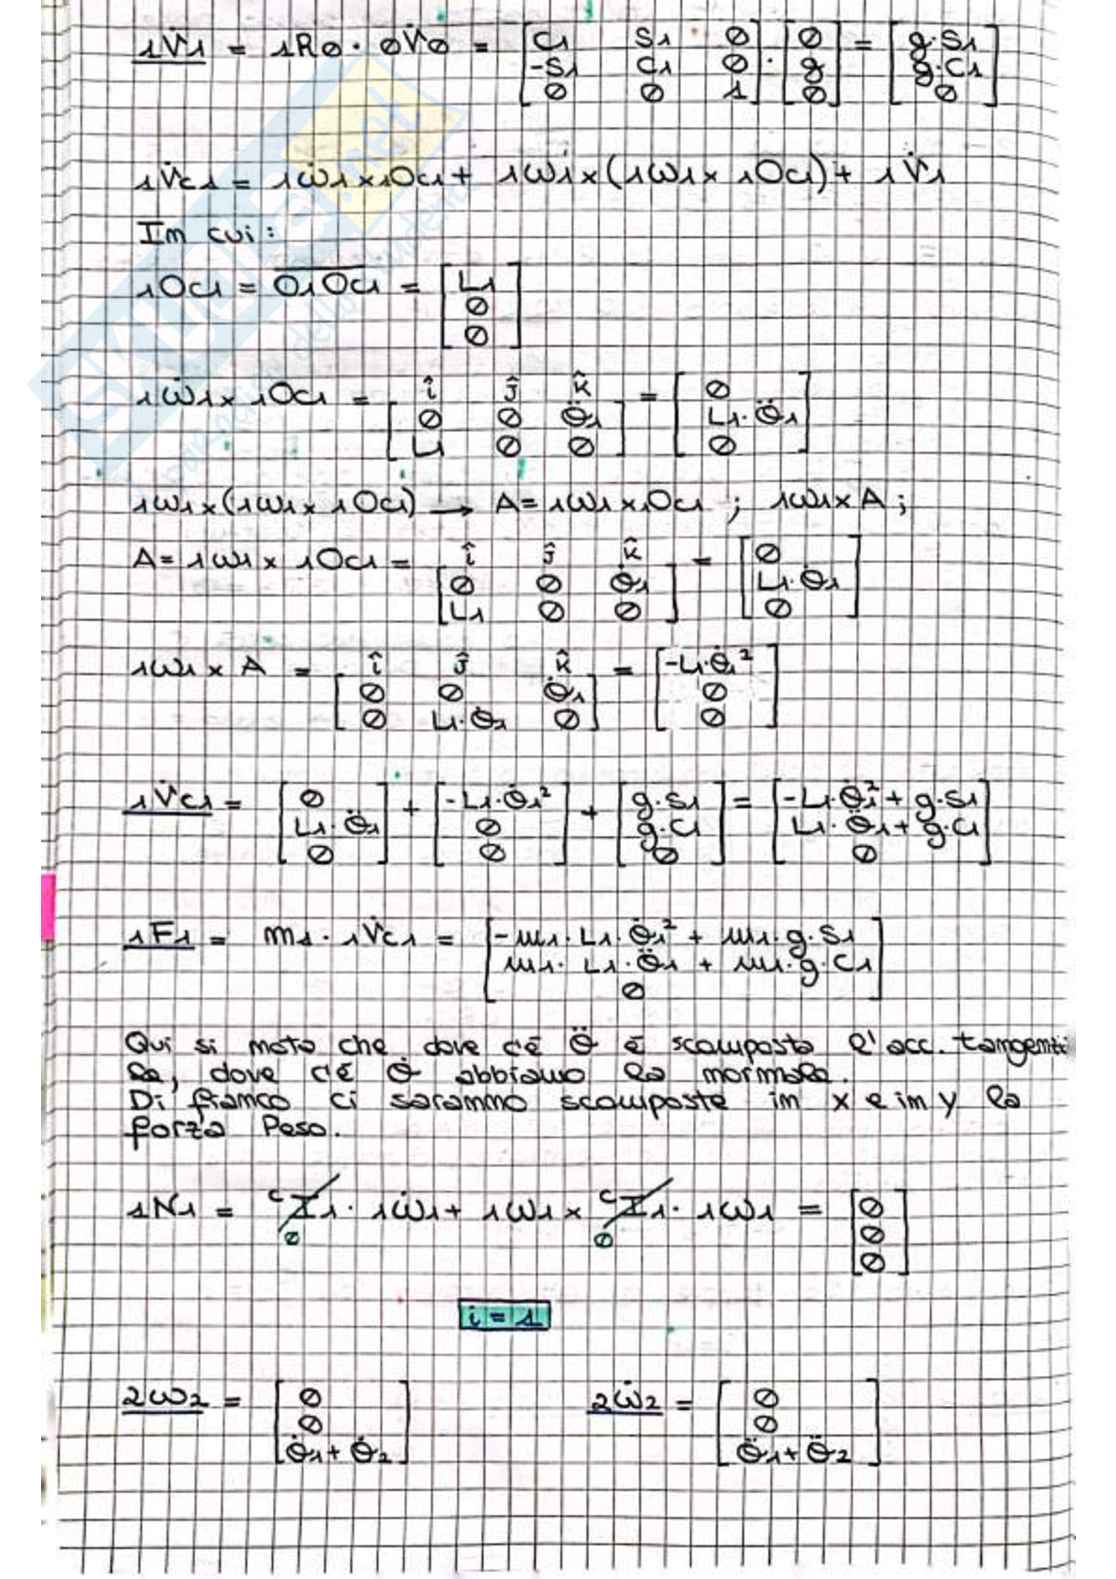 1V̇1 = 1R0 · 0V̇0 = [C1 S1 0; -S1 C1 0; 0 0 1] · [0; g; 0] = [g·S1; g·C1; 0]
1V̇c1 = 1ω̇1 × 1Oc1 + 1ω1 × (1ω1 × 1Oc1) + 1V̇1
In cui:
1Oc1 = O1Oc1 = [L1; 0; 0]
1ω̇1 × 1Oc1 = [î ĵ k̂; 0 0 Θ̈1; L1 0 0] = [0; L1·Θ̈1; 0]
1ω1×(1ω1 × 1Oc1) → A = 1ω1 × 1Oc1 ; 1ω1 × A ;
A = 1ω1 × 1Oc1 = [î ĵ k̂; 0 0 Θ̇1; L1 0 0] = [0; L1·Θ̇1; 0]
1ω1 × A = [î ĵ k̂; 0 0 Θ̇1; 0 L1·Θ̇1 0] = [-L1·Θ̇1²; 0; 0]
1V̇c1 = [0; L1·Θ̈1; 0] + [-L1·Θ̇1²; 0; 0] + [g·S1; g·C1; 0] = [-L1·Θ̇1² + g·S1; L1·Θ̈1 + g·C1; 0]
1F1 = m1 · 1V̇c1 = [-m1·L1·Θ̇1² + m1·g·S1; m1·L1·Θ̈1 + m1·g·C1; 0]
Qui si nota che dove c'è Θ̈ è scomposta l'acc. tangenzia
le, dove c'è Θ̇ abbiamo la normale.
Di fianco ci saranno scomposte in x e in y la
forza Peso.
1N1 = ᶜI1 · 1ω̇1 + 1ω1 × ᶜI1 · 1ω1 = [0; 0; 0]
0 0
i = 1
2ω2 = [0; 0; Θ̇1 + Θ̇2] 2ω̇2 = [0; 0; Θ̈1 + Θ̈2]